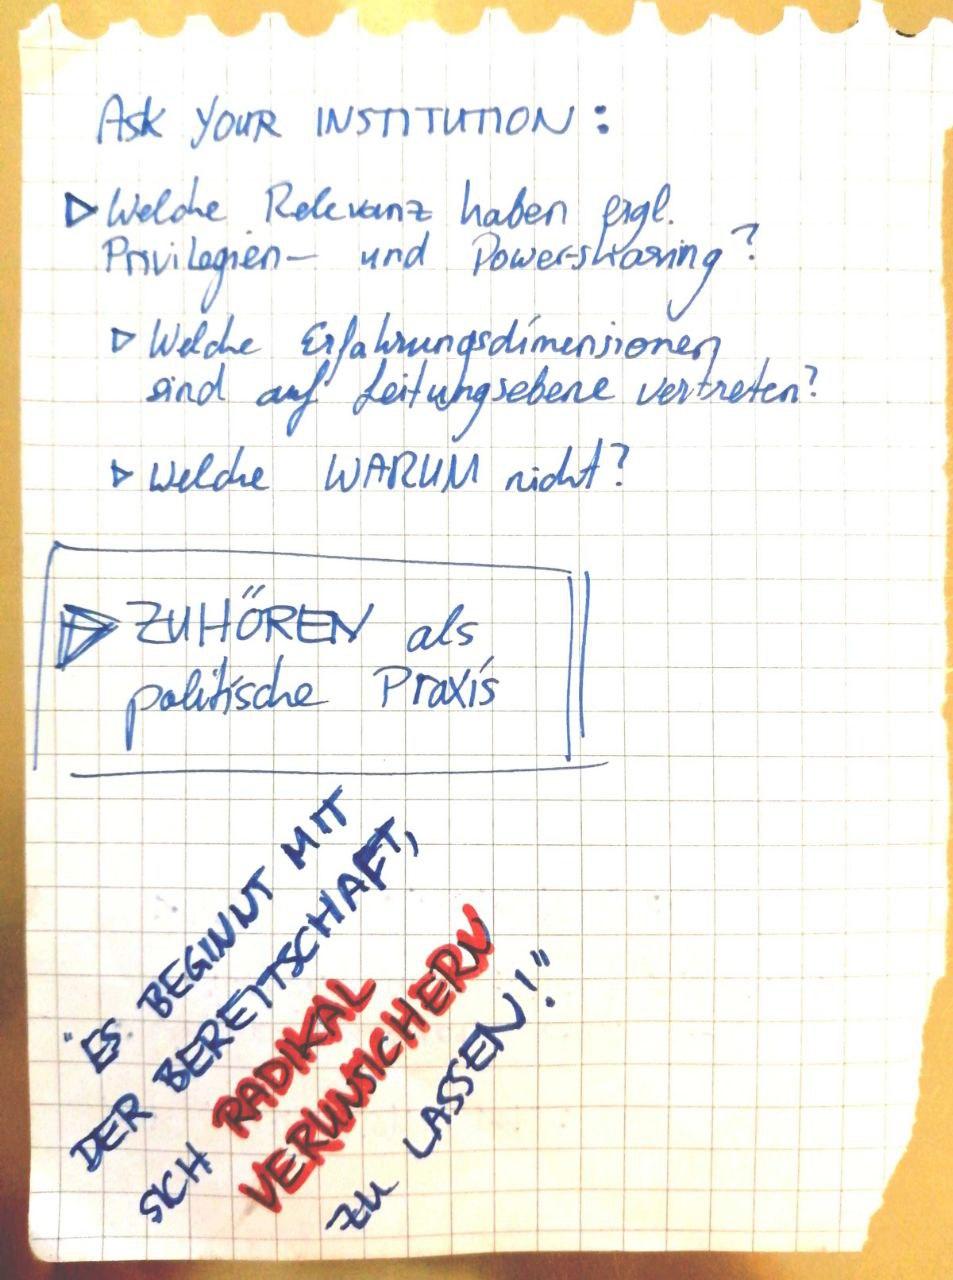 ASK YOUR INSTITUTION:
Welche Relevanz haben
Privilegien- und Powersharing?
Welche Erfahrungsdimensionen
sind auf Leitungsebene vertreten?
Welche WARUM nicht?
ZUHÖREN als
politische Praxis
"ES BEGINNT MIT
DER BEREITSCHAFT,
SICH RADIKAL
VERUNSICHERN
ZU LASSEN!"